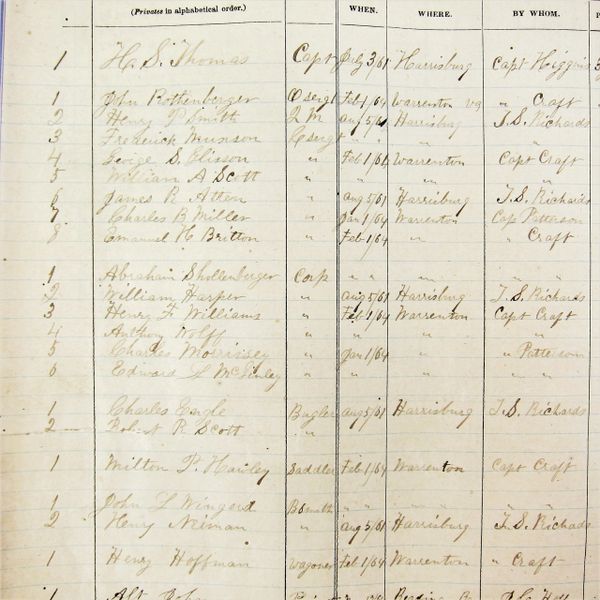 (Privates in alphabetical order.) WHEN. WHERE. BY WHOM. P
1 H. S. Thomas Capt July 3/61 Harrisburg Capt Higgins 3
1 John Rothenberger O sergt Feb 1/64 Warrenton va " Craft
2 Henry P Smith Q M Aug 5/61 Harrisbug T. S. Richards
3 Frederick Munson C sergt " " "
4 George S. Clisson " Feb 1/64 Warrenton Capt Craft
5 William A Scott " " " "
6 James R Atten " Aug 5/61 Harrisburg T. S. Richards
7 Charles B Miller " Jan 1/64 Warrenton Cap Patterson
8 Emanuel H Britton " Feb 1/64 " " Craft
1 Abraham Shollenberger Corp " " " " "
2 William Harper " Aug 5/61 Harrisburg T. S. Richards
3 Henry F Williams " Feb 1/64 Warrenton Capt Craft
4 Anthony Wolff " " " " "
5 Charles Morrissey " Jan 1/64 " " Patterson
6 Edward L McGinley " " " " "
1 Charles Engle Bugler Aug 5/61 Harrisburg T. S. Richards
2 Rob't R Scott " "
1 Milton P. Hawley Saddler Feb 1/64 Warrenton Capt Craft
1 John L Wingard Bsmith " " " " "
2 Henry Niman " Aug 5/61 Harrisburg T. S. Richads
1 Henry Hoffman Wagoner Feb 1/64 Warrenton " Craft
1 Alt John